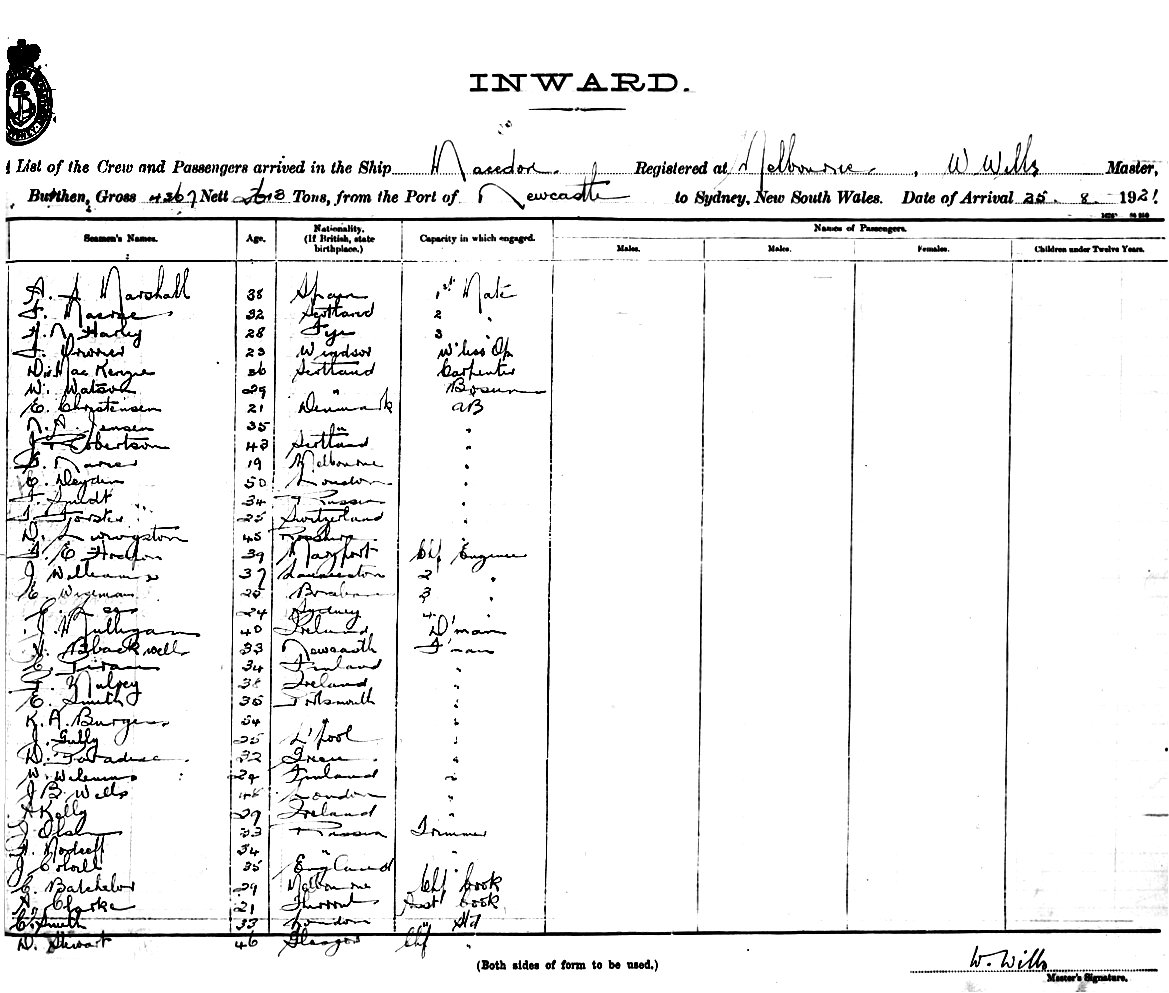 INWARD.
List of the Crew and Passengers arrived in the Ship Macedon. Registered at Melbourne. W Wills Master,
Burthen, Gross 4367 Nett Tons, from the Port of Newcastle to Sydney, New South Wales. Date of Arrival 25. 8. 1921
Names of Passengers.
Seamen's Names. Age. Nationality. (If British, state birthplace.) Capacity in which engaged. Males. Males. Females. Children under Twelve Years.
A. A Marshall 38 1st Mate
32 Scotland 2 "
Harley 28 Fife 3
J. 23 Windsor W'less Op
D. MacKenzie 36 Scotland Carpenter
W. Watson 29 " Bosun
C. Christensen 21 Denmark AB
N. A. Jensen 35 " "
J Robertson 43 Scotland "
19 Melbourne "
50 London "
J. Smidt 34 Russia "
J. Forster 25 Switzerland "
D. Livingston 45
E 39 Maryport Chf Engineer
J Williams 37 Launceston 2 "
Wiseman 25 Brisbane 3 "
24 Sydney 4 "
J. Mulligan 40 Ireland D'man
Blackwell 33 Newcastle F'man
34 Finland "
38 Ireland "
C. Smith 35 Portsmouth "
K. A. Burgess 34 " "
J. Gully 25 L'pool "
D. Paradise 32 "
W. 24 Finland "
J B. Wells 48 London "
A Kelly 29 Ireland "
J Olsen 33 Russia Trimmer
34 " "
J 35 England "
C. Batchelor 29 Melbourne Chf Cook
A. Clarke 21 Asst Cook
C. Smith 33 London Std
D. Stewart 46 Glasgow Chf "
(Both sides of form to be used.)
W. Wills
Master's Signature.